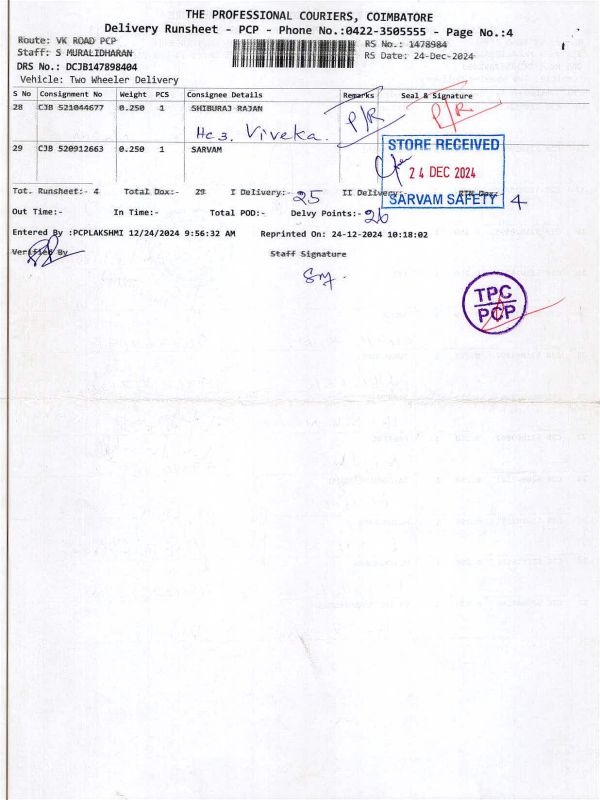 THE PROFESSIONAL COURIERS, COIMBATORE
Delivery Runsheet - PCP - Phone No.:0422-3505555 - Page No.:4
Route: VK ROAD PCP RS No.: 1478984
Staff: S MURALIDHARAN RS Date: 24-Dec-2024
DRS No.: DCJB147898404
Vehicle: Two Wheeler Delivery
S No Consignment No Weight PCS Consignee Details Remarks Seal & Signature
28 CJB 521044677 0.250 1 SHIBURAJ RAJAN P/R P/R
Viveka.
29 CJB 520912663 0.250 1 SARVAM
STORE RECEIVED
24 DEC 2024
SARVAM SAFETY 4
Tot. Runsheet:- 4 Total Dox:- 29 I Delivery:- 25 II Delivery:-
Out Time:- In Time:- Total POD:- Delvy Points:- 26
Entered By :PCPLAKSHMI 12/24/2024 9:56:32 AM Reprinted On: 24-12-2024 10:18:02
Verified By Staff Signature
TPC
PCP